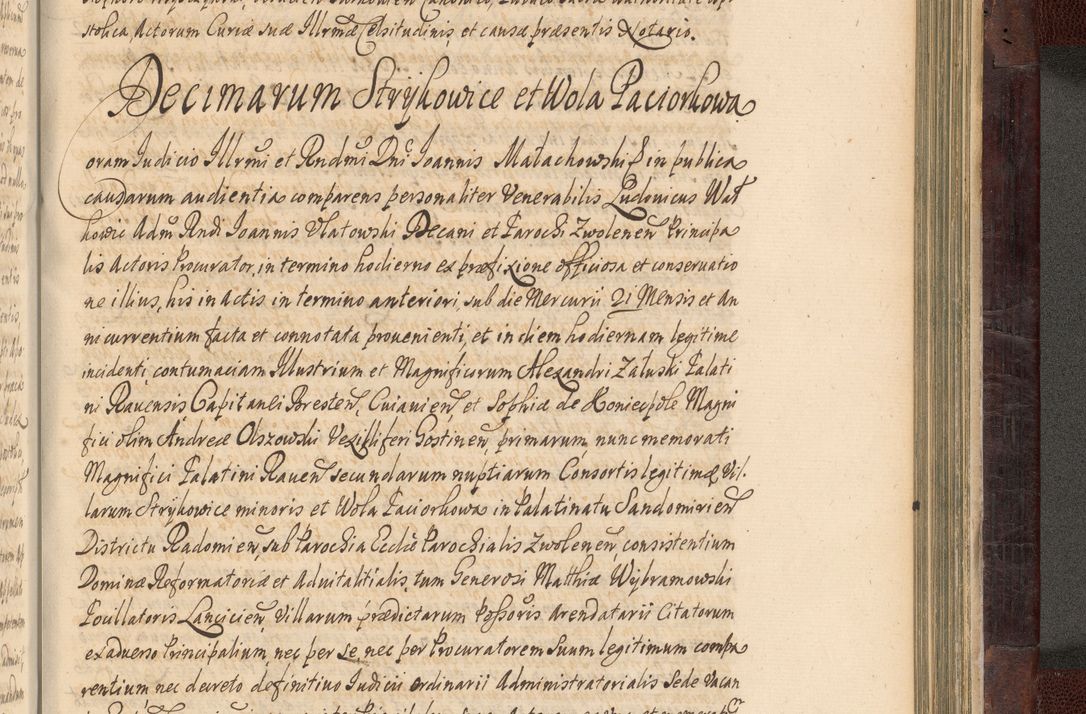 stolica, Actorum Curiæ suæ Illrmæ Celsitudinis, et causæ præsentis Notario.
Decimarum Strykowice et Wola Paciorkowa
oram Iudicio Illrmi et Rndmi Dni Ioannis Małachowski in publica
causarum audientia comparens personaliter Venerabilis Ludovicus Wal
kowic Adm Rndi Ioannis Ulatowski Decani et Parochi Zwolenen Principa
lis Actoris Procurator, in termino hodierno ex præfixione officiosa et conservatio
ne illius, his in actis in termino anteriori, sub die Mercurii 21 Mensis et an
ni currentium facta et connotata provenienti, et in diem hodiernam legitime
incidenti, contumaciam Illustrium et Magnificorum Alexandri Załuski Palati
ni Ravensis Capitanei Bresten, Cuiavien et Sophiæ de Koniecpole Magni
fici olim Andreæ Olszowski Vexilliferi Gostinen, primarum, nunc memorati
Magnifici Palatini Raven secundarum nuptiarum Consortis legitimæ Vil.
larum Strykowice minoris et Wola Paciorkowa in Palatinatu Sandomirien
Districtu Radomien, sub Parochia Ecclæ Parochialis Zwolenen, consistentium
Dominæ Reformatoriæ et Advitalitialis, tum Generosi Matthiæ Wybramowski
Pocillatoris Lancicien, Villarum prædictarum Possoris Arendatarii Citatorum
ex adverso Principalium, nec per se, nec per Procuratorem suum legitimum compa
rentium nec decreto definitivo Iudicii ordinarii Administratorialis Sede Vacan